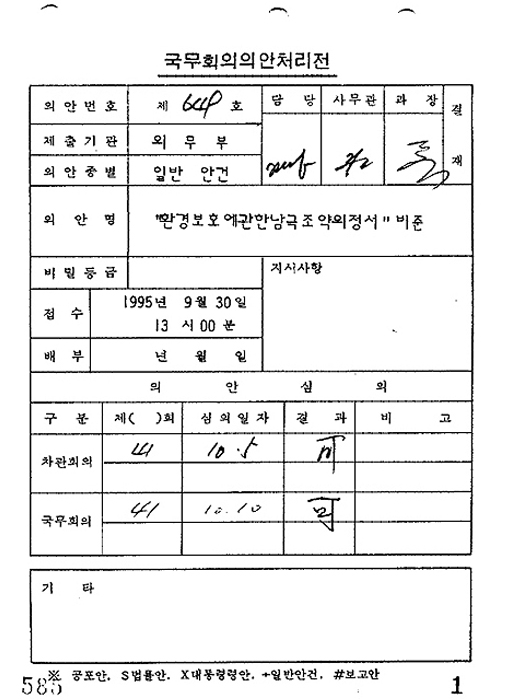 국무회의의안처리전
의안번호 제 644 호 담당 사무관 과장 결재
제출기관 외무부
의안종별 일반 안건
의안명 "환경보호에관한남극조약의정서" 비준
비밀등급 지시사항
접수 1995년 9월 30일
13 시 00 분
배부 년 월 일
의안심의
구분 제( )회 심의일자 결과 비고
차관회의 41 10.5 可
국무회의 41 10.10 可
기타
※ 공포안, S법률안, X대통령령안, +일반안건, #보고안
585 1